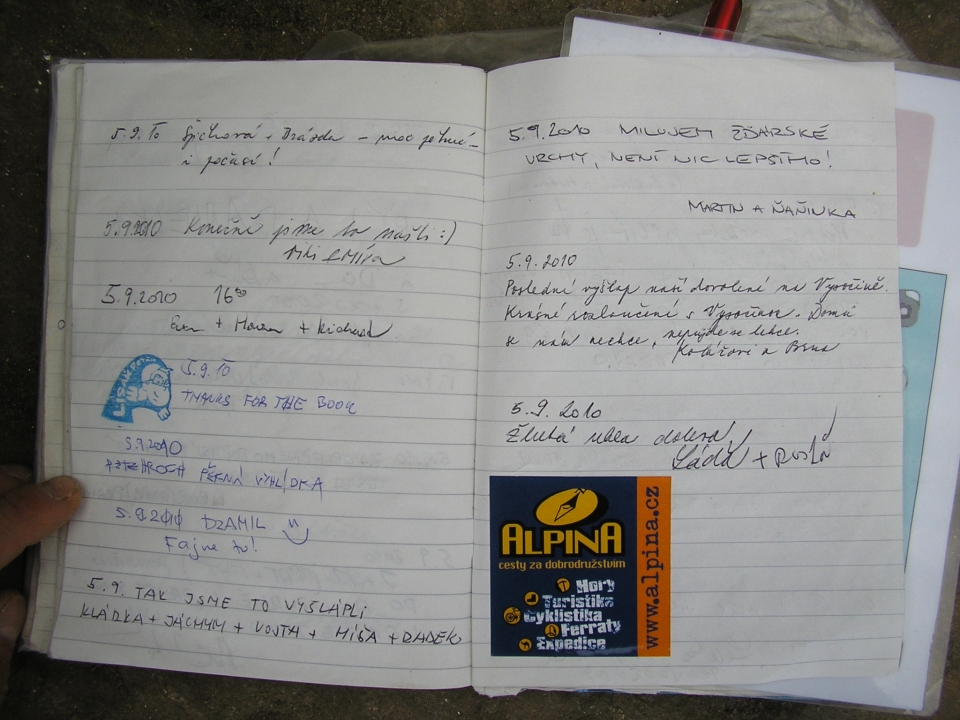 5.9.10 Špičková + Drázda – moc pěkné –
i počasí!
5.9.2010 Konečně jsme to našli :)
Míra
5.9.2010 16⁰⁰
+ + Richard
5.9.10
THANKS FOR THE BOOK
5.9.2010
PĚKNÁ VYHLÍDKA
5.9.2010 DZAMIL
Fajne to!
5.9. TAK JSME TO VYŠLÁPLI
KLÁRKA + JÁCHYM + VOJTA + MÍŠA + RADEK
5.9.2010 MILUJEM ŽĎÁRSKÉ
VRCHY, NENÍ NIC LEPSÍHO!
MARTIN A ŇAŇINKA
5.9.2010
Poslední výšlap naší dovolené na Vysočině.
Krásné rozloučení s Vysočinou. Domů
se nám nechce, nepůjde se lehce.
Kolářovi z Brna
5.9.2010
Žlutá dobrá!
Láďa +
ALPINA
cesty za dobrodružstvím
Hory
Turistika
Cyklistika
Ferraty
Expedice
www.alpina.cz